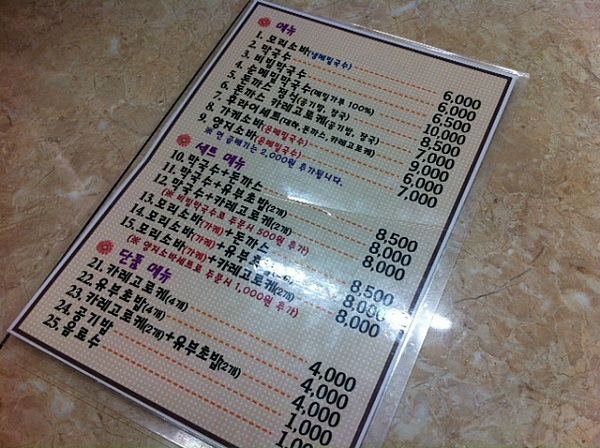 메뉴
1. 모리소바(냉메밀국수) 6,000
2. 막국수 6,000
3. 비빔막국수 6,500
4. 순메밀막국수(메밀가루 100%) 10,000
5. 돈까스 정식(공기밥, 장국) 8,500
6. 돈까스 카레고로케(공기밥, 장국) 7,000
7. 후라이세트(대하,돈까스, 카레고로케) 9,000
8. 가케소바(온메밀국수) 6,000
9. 양저소바(온메밀국수) 7,000
※ 면 곱빼기는 2,000원 추가됩니다.
세트 메뉴
10. 막국수+돈까스 8,500
11. 막국수+유부초밥(2개) 8,000
12. 막국수+카레고로케(2개) 8,000
(※ 비빔막국수로 주문시 500원 추가)
13. 모리소바(가케)+돈까스 8,500
14. 모리소바(가케)+유부초밥(2개) 8,000
15. 모리소바(가케)+카레고로케(2개) 8,000
(※ 양저소바세트로 주문시 1,000원 추가)
단품 메뉴
21. 카레고로케(4개) 4,000
22. 유부초밥(4개) 4,000
23. 카레고로케(2개)+유부초밥(2개) 4,000
24. 공기밥 1,000
25. 음료수 1,000